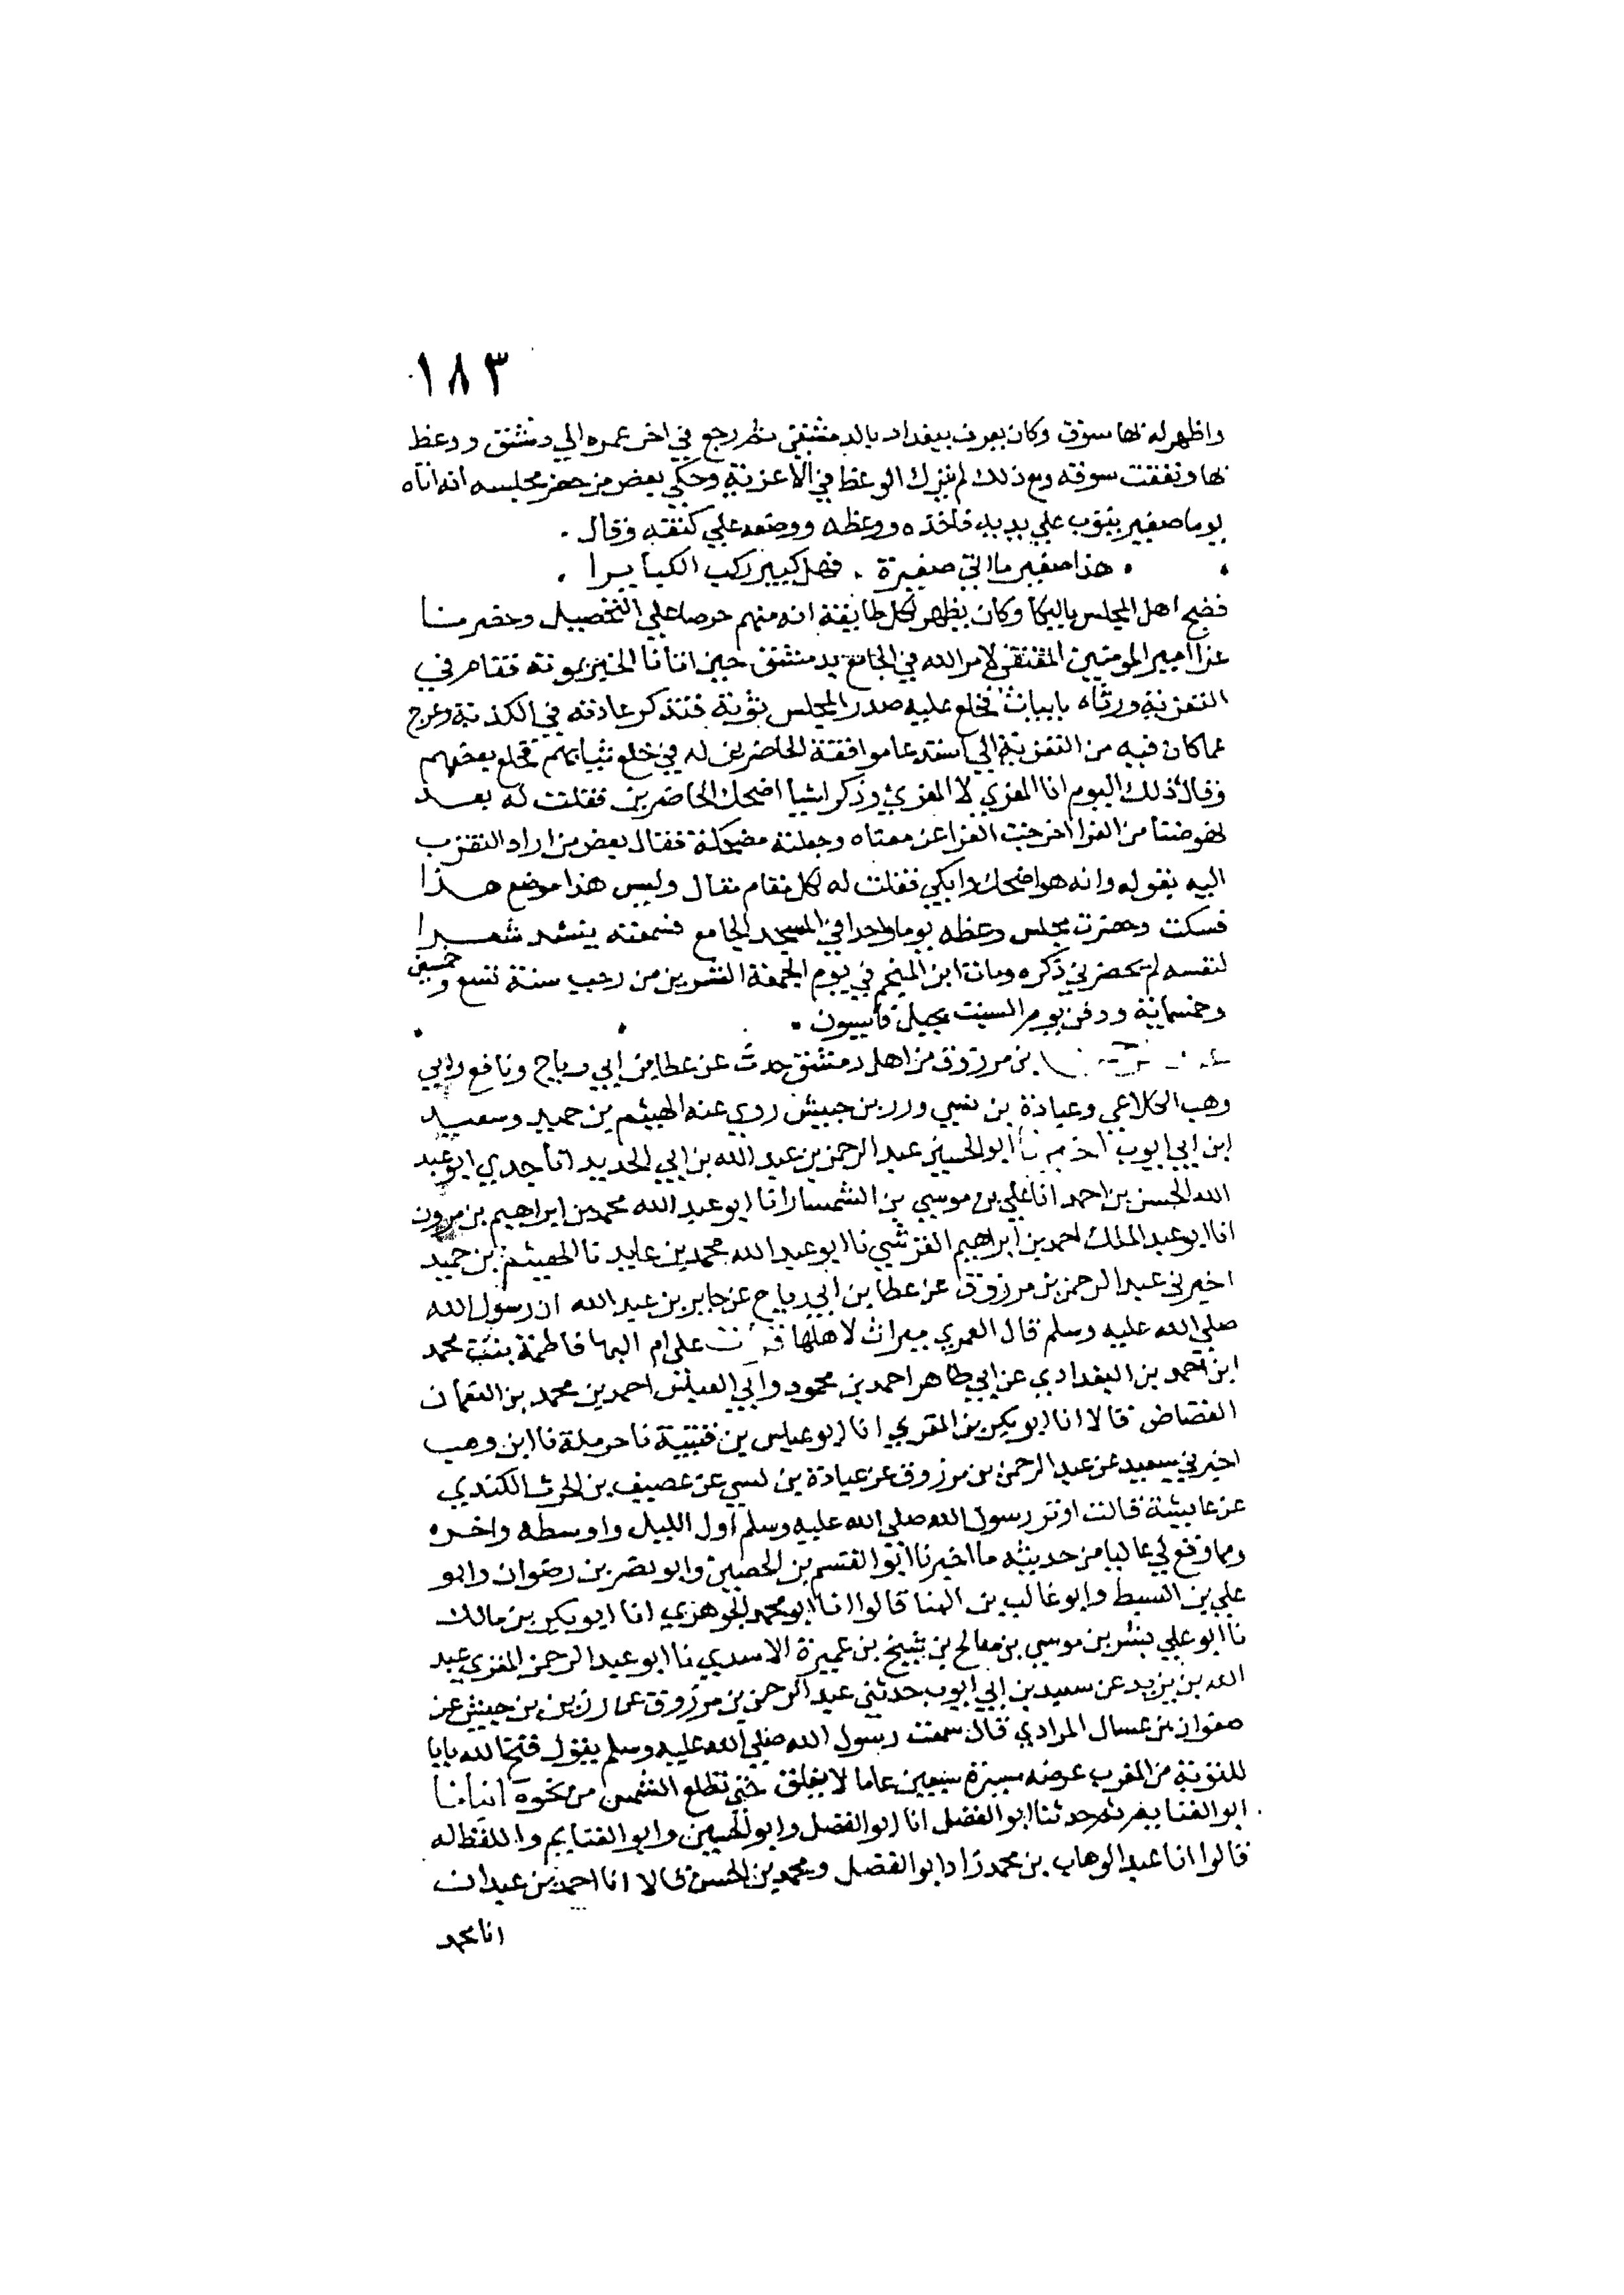 ١٨٣
واظهر له بها سوق وكان يعرف ببغداد بالدمشقي ثم رجع في اخر عمره الي دمشق ووعظ
بها ونفقت سوقه ومع ذلك لم يترك الوعظ في الاعزية وحكي بعض من حضر مجلسه انه اتاه
يوما صغير يتوب علي يديه فاخذه ووعظه ووضعه علي كتفه وقال .
. هذا صغير ما اتي صغيرة . فهل كبير ركب الكبايرا .
فضج اهل المجلس بالبكا وكان يظهر لكل طايفة انه منهم حرصا علي التحصيل وحضر منا
عزا امير المومنين المقتفي لامر الله في الجامع بدمشق حين اتانا الخبر بموته فقام في
التعزية ورثاه بابيات فخلع عليه صدر المجلس ثوبه فتذكر عادته في الكدية وخرج
عما كان فيه من التعزية الي استدعا موافقة الحاضرين له في خلع ثيابهم فخلع بعضهم
وقال ذلك اليوم انا المعري لا المعزي وذكر اشيا اضحك الحاضرين فقلت له بعد
نهوضنا من العزا اخرجت العزا عن معناه وجعلته مضحكة فقال بعض من اراد التقرب
اليه بقوله وانه هو اضحك وابكي فقلت له لكل مقام مقال وليس هذا موضع هذا
فسكت وحضرت مجلس وعظه يوما واحدا في المسجد الجامع فسمعته ينشد شعرا
لنفسه لم يحضرني ذكره ومات ابن المنجم في يوم الجمعة العشرين من رجب سنة تسع وخمسين
وخمسماية ودفن يوم السبت بجبل قاسيون .
بن مرزوق من اهل دمشق حدث عن عطا بن ابي رباح ونافع وابي
وهب الكلاعي وعبادة بن نسي وزر بن حبيش روي عنه الهيثم بن حميد وسعيد
ابن ابي ايوب اخبرنا ابو الحسين عبد الرحمن بن عبد الله بن ابي الحديد انا جدي ابو عبد
الله الحسن بن احمد انا علي بن موسي بن السمسار انا ابو عبد الله محمد بن ابراهيم بن مروان
انا ابو عبد الملك احمد بن ابراهيم القرشي نا ابو عبد الله محمد بن عايد نا الهيثم بن حميد
اخبرني عبد الرحمن بن مرزوق عن عطا بن ابي رباح عن جابر بن عبد الله ان رسول الله
صلي الله عليه وسلم قال العمري ميراث لاهلها قرات علي ام البها فاطمة بنت محمد
ابن احمد بن البغدادي عن ابي طاهر احمد بن محمود وابي العباس احمد بن محمد بن النعمان
القصاص قالا انا ابو بكر بن المقري انا ابو عباس بن قتيبة نا حرملة نا ابن وهب
اخبرني سعيد عن عبد الرحمن بن مرزوق عن عبادة بن نسي عن عصيف بن الحرث الكندي
عن عايشة قالت اوتر رسول الله صلي الله عليه وسلم اول الليل واوسطه واخره
ومما وقع لي عاليا من حديثه ما اخبرنا ابو القسم بن الحصين وابو نصر بن رضوان وابو
علي بن السبط وابو غالب بن البنا قالوا انا ابو محمد الجوهري انا ابو بكر بن مالك
نا ابو علي بشر بن موسي بن صالح بن شيخ بن عميرة الاسدي نا ابو عبد الرحمن المقري عبد
الله بن يزيد عن سعيد بن ابي ايوب حدثني عبد الرحمن بن مرزوق عن زر بن حبيش عن
صفوان بن عسال المرادي قال سمعت رسول الله صلي الله عليه وسلم يقول فتح الله بابا
للتوبة من المغرب عرضه مسيرة سبعين عاما لا يغلق حتي تطلع الشمس من نحوه انبانا
ابو الغنايم ثم حدثنا ابو الفضل انا ابو الفضل وابو الحسين وابو الغنايم واللفظ له
قالوا انا عبد الوهاب بن محمد زاد ابو الفضل ومحمد بن الحسن قالا انا احمد بن عبدان
انا محمد